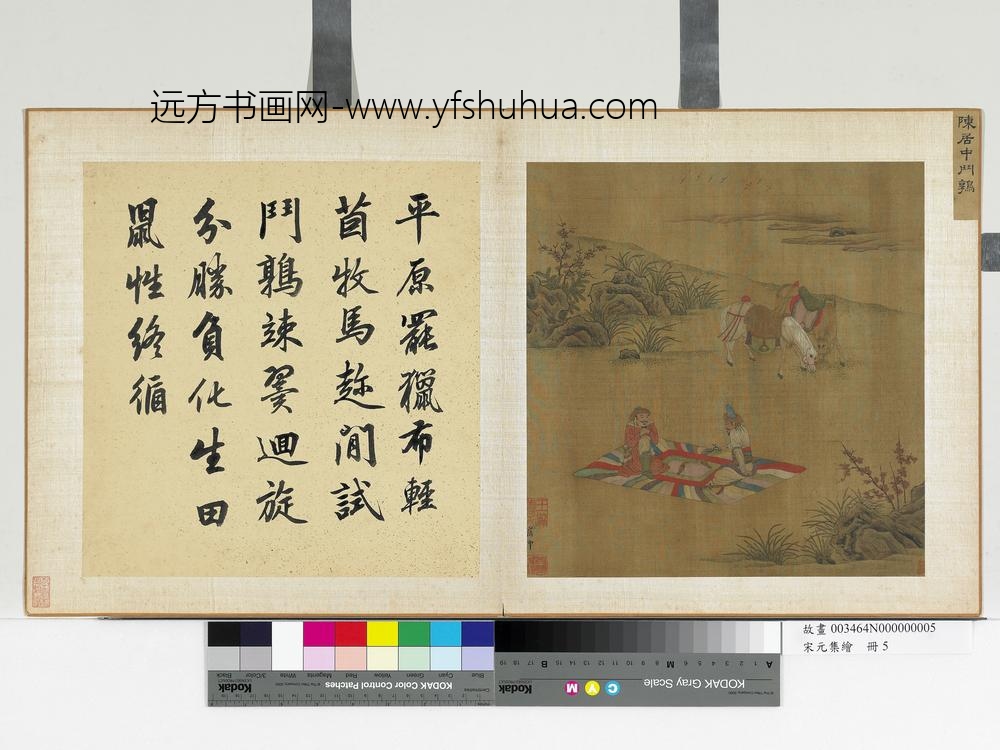 远方书画网-www.yfshuhua.com
陳居中鬥鶉
平原罷獵布輕
茵牧馬趂閒試
鬥鶉竦翼迴旋
分勝負化生田
鼠性終循
故畫 003464N000000005
宋元集繪 冊 5
KODAK Color Control Patches
Kodak
Blue
Cyan
Green
Yellow
Red
Magenta
White
3/Color
Black
KODAK Gray Scale
Kodak
C Y M
A 1 2 3 4 5 6 M 8 9 10 11 12 13 14 15 B 17 18 19